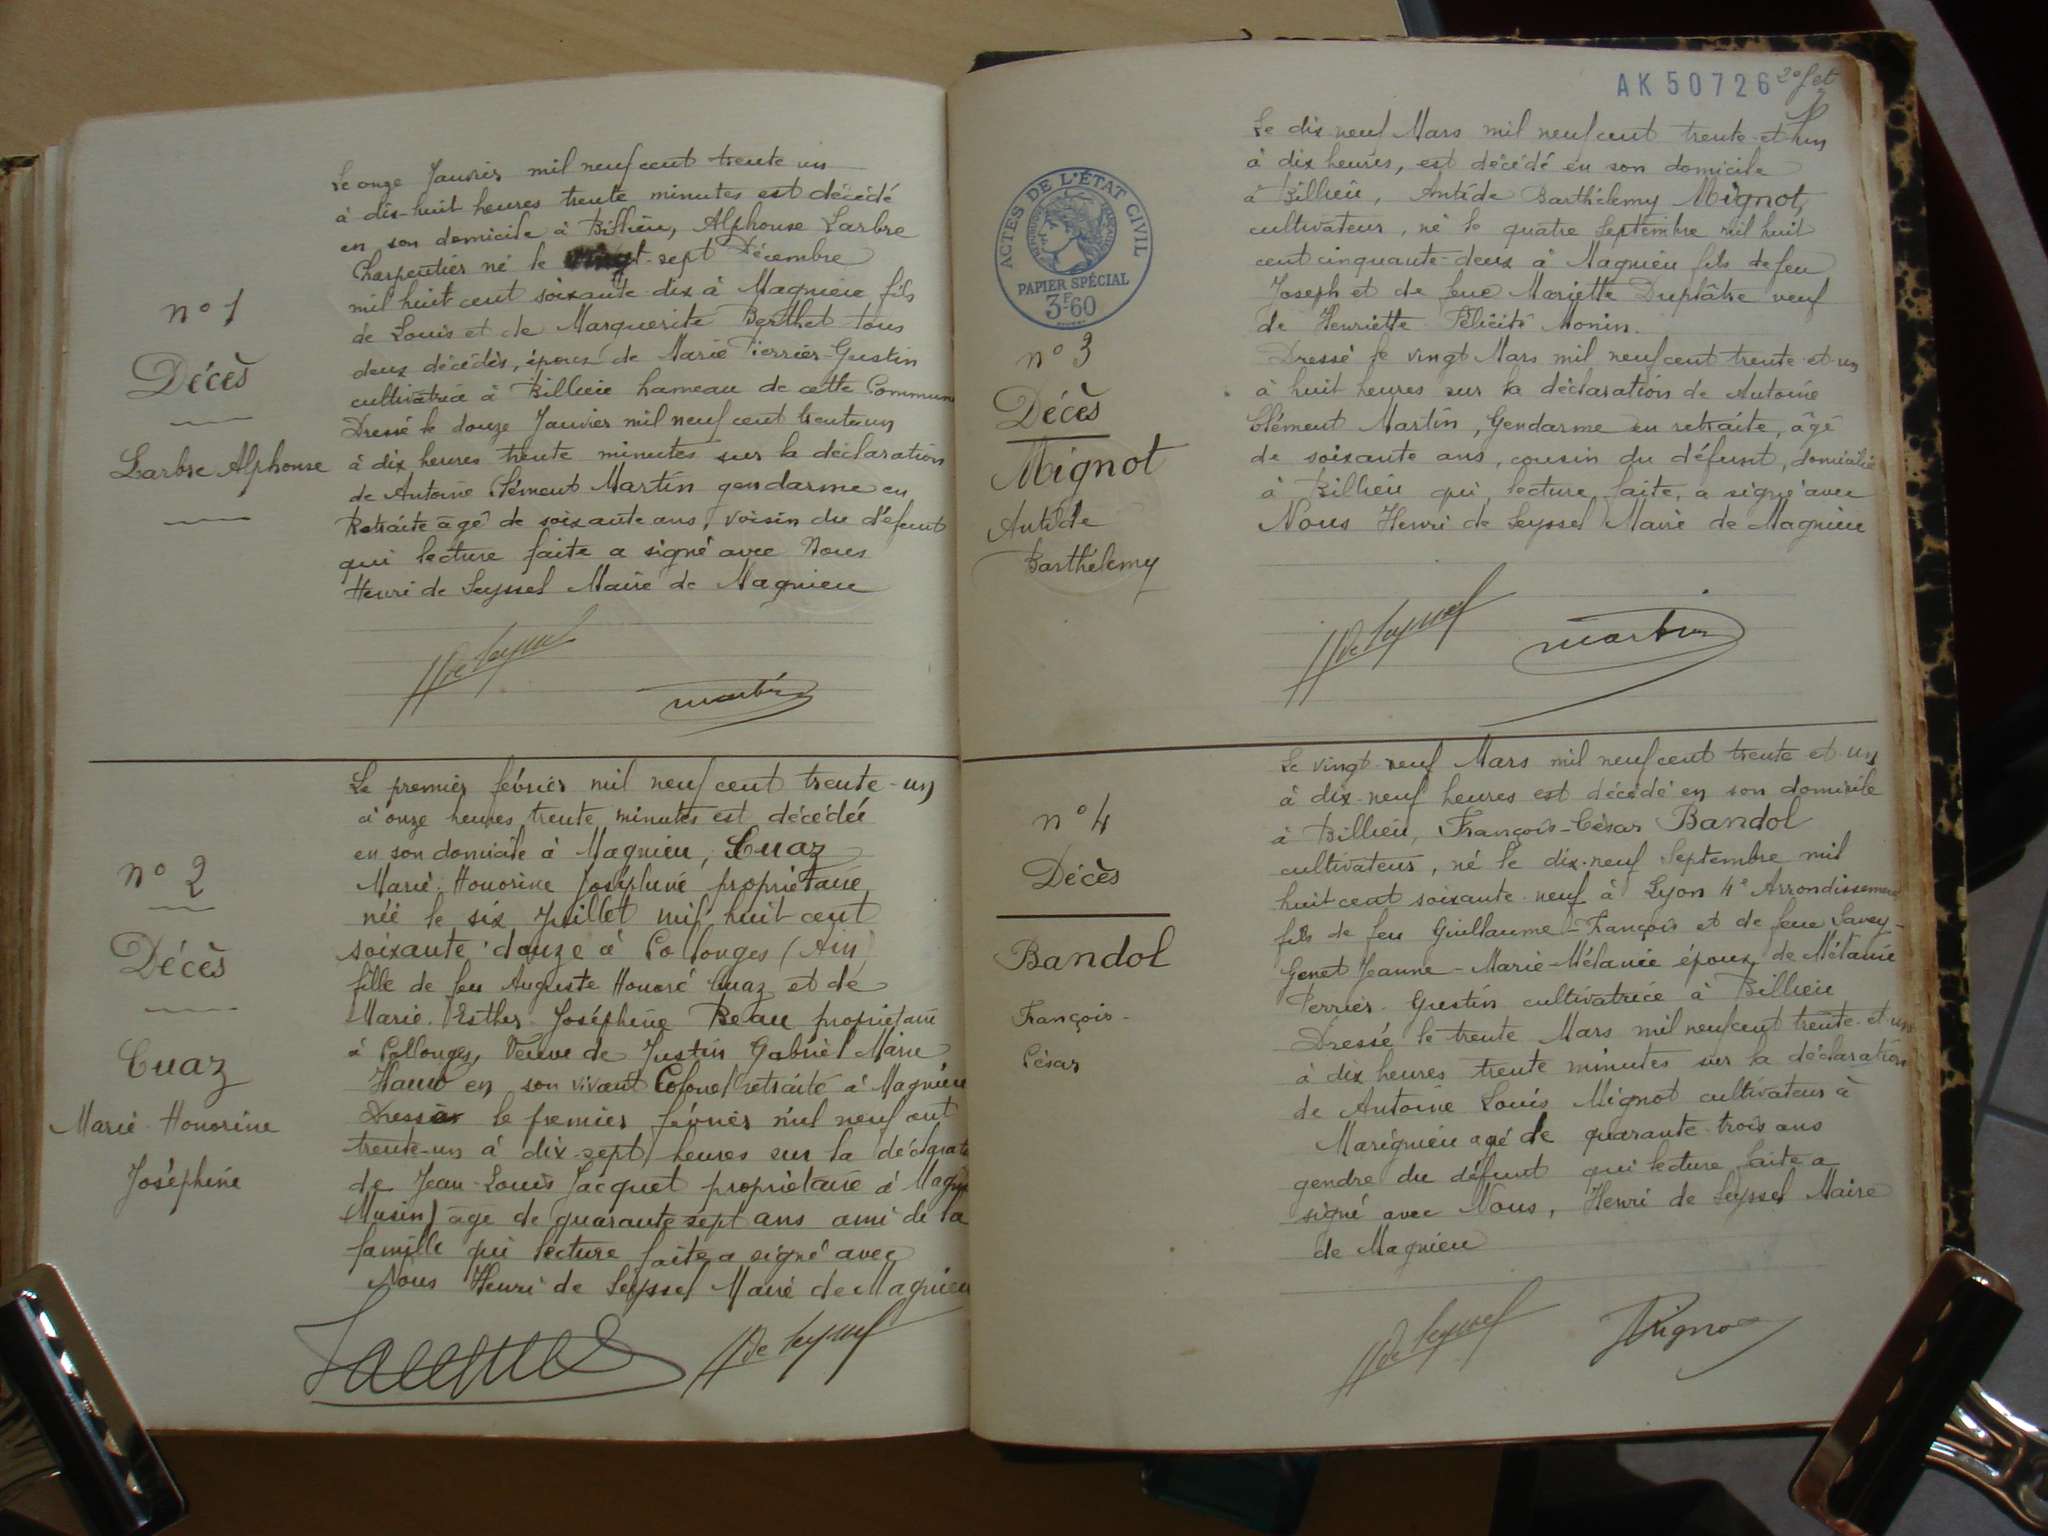 n° 1
Décès
Larbre Alphonse
Le onze Janvier mil neuf cent trente un
à dix-huit heures trente minutes est décédé
en son domicile à Billieu, Alphonse Larbre
Charpentier né le vingt-sept Décembre
mil huit cent soixante-dix à Magnieu fils
de Louis et de Marguerite Berthet tous
deux décédés, époux de Marie Perrier-Gustin
cultivatrice à Billieu hameau de cette Commune
Dressé le douze Janvier mil neuf cent trente un
à dix heures trente minutes sur la déclaration
de Antoine Clément Martin gendarme en
Retraite âgé de soixante ans, voisin du défunt
qui lecture faite a signé avec Nous
Henri de Seyssel Maire de Magnieu
H de Seyssel
Martin
n° 2
Décès
Cuaz
Marie Honorine
Joséphine
Le premier février mil neuf cent trente-un
à onze heures trente minutes est décédée
en son domicile à Magnieu, Cuaz
Marie Honorine Joséphine propriétaire
née le six Juillet mil huit cent
soixante-douze à Collonges (Ain)
fille de feu Auguste Honoré Cuaz et de
Marie Esther Joséphine Beau propriétaire
à Collonges, Veuve de Justin Gabriel Marie
en son vivant Colonel retraité à Magnieu
Dressé le premier février mil neuf cent
trente-un à dix-sept heures sur la
de Jean-Louis Jacquet propriétaire à
(Musin) âgé de quarante sept ans ami de la
famille qui lecture faite a signé avec
Nous Henri de Seyssel Maire de Magnieu
Jacquet
H de Seyssel
AK 50726
ACTES DE L'ÉTAT CIVIL
PAPIER SPÉCIAL
3F60
n° 3
Décès
Mignot
Antide
Barthélemy
Le dix neuf Mars mil neuf cent trente-et-un
à dix heures, est décédé en son domicile
à Billieu, Antide Barthélemy Mignot,
cultivateur, né le quatre Septembre mil huit
cent cinquante-deux à Magnieu fils de feu
Joseph et de feue Mariette Duplâtre veuf
de Henriette Félicité Monin.
Dressé le vingt Mars mil neuf cent trente-et-un
à huit heures sur la déclaration de Antoine
Clément Martin, Gendarme en retraite, âgé
de soixante ans, cousin du défunt, domicilié
à Billieu qui, lecture faite, a signé avec
Nous Henri de Seyssel Maire de Magnieu
H de Seyssel
Martin
n° 4
Décès
Bandol
François-
César
Le vingt-neuf Mars mil neuf cent trente et-un
à dix-neuf heures est décédé en son domicile
à Billieu, François-César Bandol
cultivateur, né le dix-neuf Septembre mil
huit cent soixante-neuf à Lyon 4e Arrondissement
fils de feu Guillaume-François et de feue Savey-
Genet Jeanne-Marie-Mélanie époux de Mélanie
Perrier-Gustin cultivatrice à Billieu
Dressé le trente Mars mil neuf cent trente-et-un
à dix heures trente minutes sur la déclaration
de Antoine Louis Mignot cultivateur à
Marignieu agé de quarante-trois ans
gendre du défunt qui lecture faite a
signé avec Nous, Henri de Seyssel Maire
de Magnieu
H de Seyssel
Mignot